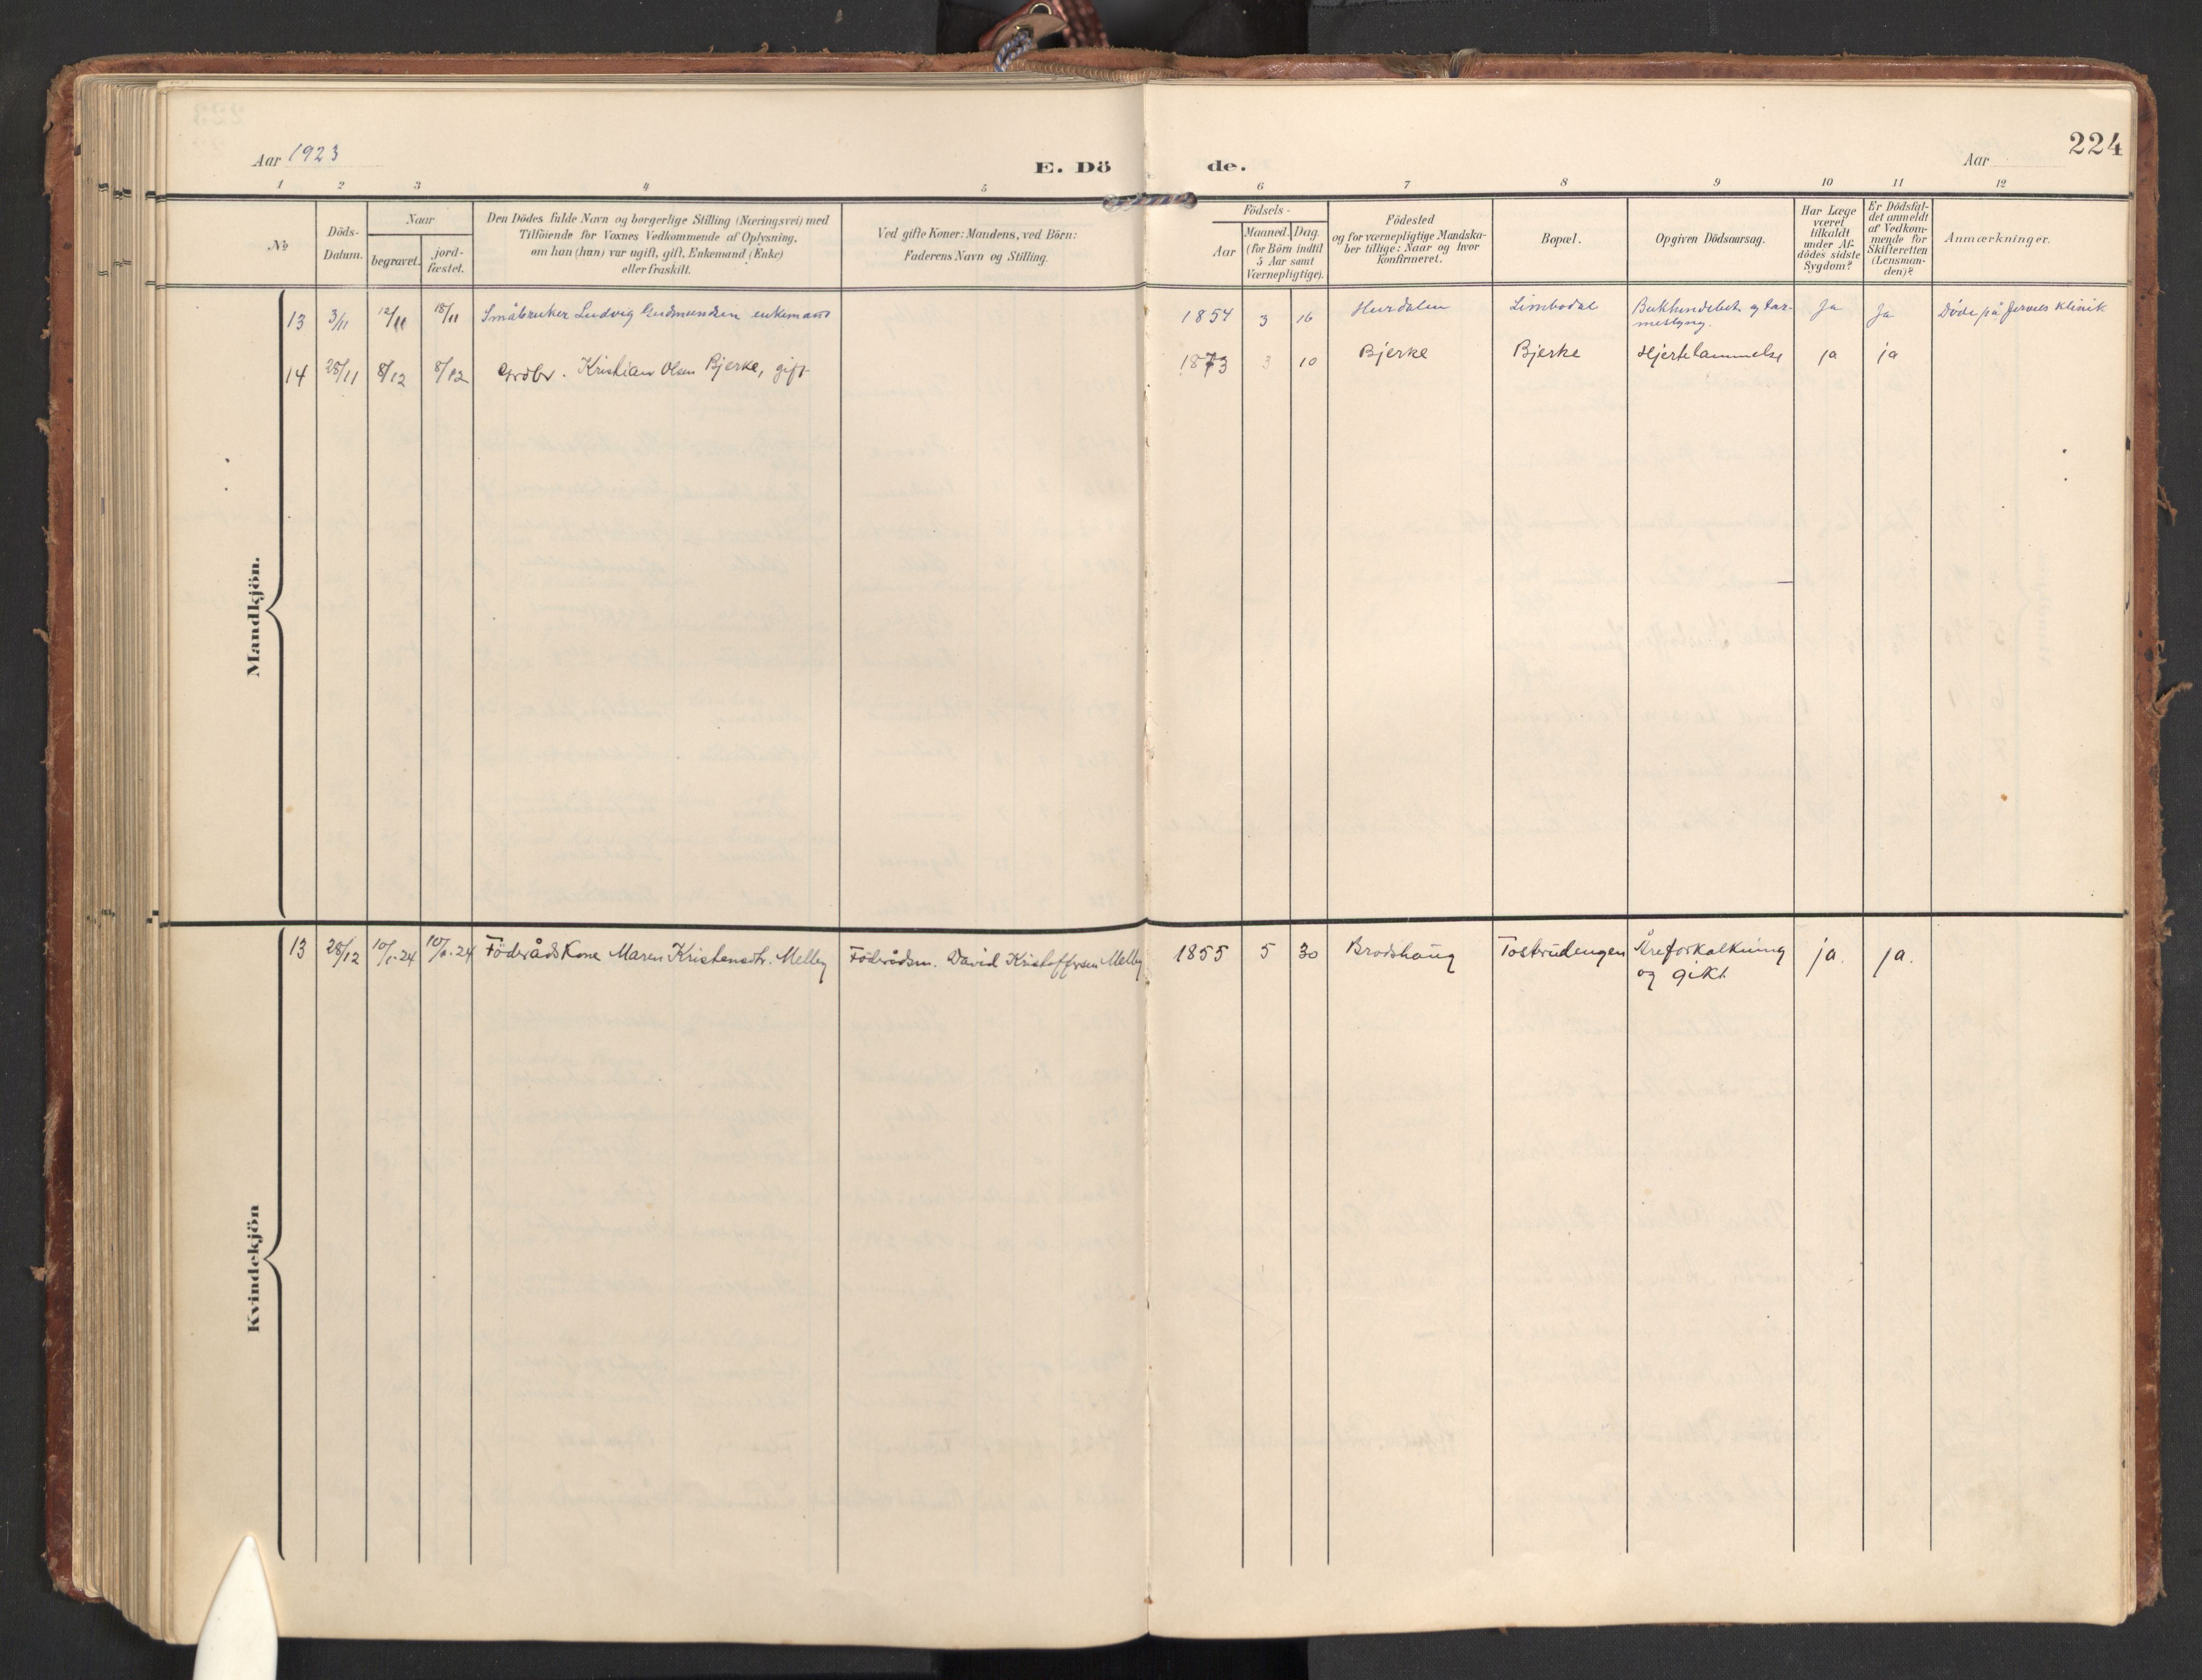 224
Aar 1923
E. Dö de.
Aar
1 2 3 4 5 6 7 8 9 10 11 12
№
Döds-
Datum.
Naar
begravet.
jord-
fæstet.
Den Dödes fulde Navn og borgerlige Stilling (Næringsvei) med
Tilföiende for Voxnes Vedkommende af Oplysning,
om han (hun) var ugift, gift, Enkemand (Enke)
eller fraskilt.
Ved gifte Koner: Mandens, ved Börn:
Faderens Navn og Stilling.
Födsels-
Aar
Maaned. Dag.
(for Börn indtil
5 Aar samt
Værnepligtige).
Födested
og for værnepligtige Mandska-
ber tillige: Naar og hvor
konfirmeret.
Bopæl.
Opgiven Dödsaarsag.
Har Læge
været
tilkaldt
under Af-
dödes sidste
Sygdom?
Er Dödsfal-
det anmeldt
af Vedkom-
mende for
Skifteretten
(Lensman-
den)?
Anmærkninger.
Mandkjön.
13 3/11 12/11 18/11 Småbruker Ludvig Gudmundsen enkemand 1854 3 16 Hurdalen Limbodal Ja Ja Döde på klinik
14 28/11 8/12 8/12 Grdbr. Kristian Olsen Bjerke, gift 1873 3 10 Bjerke Bjerke Hjertelammelse ja ja
Kvindekjön
13 28/12 10/1-24 10/1-24 Föderådskone Maren Kristensdtr. Melby Föderådsm. David Kristoffersen Melby 1855 5 30 Brodshaug Tostrudengen Åreforkalkning ja. ja.
og gikt